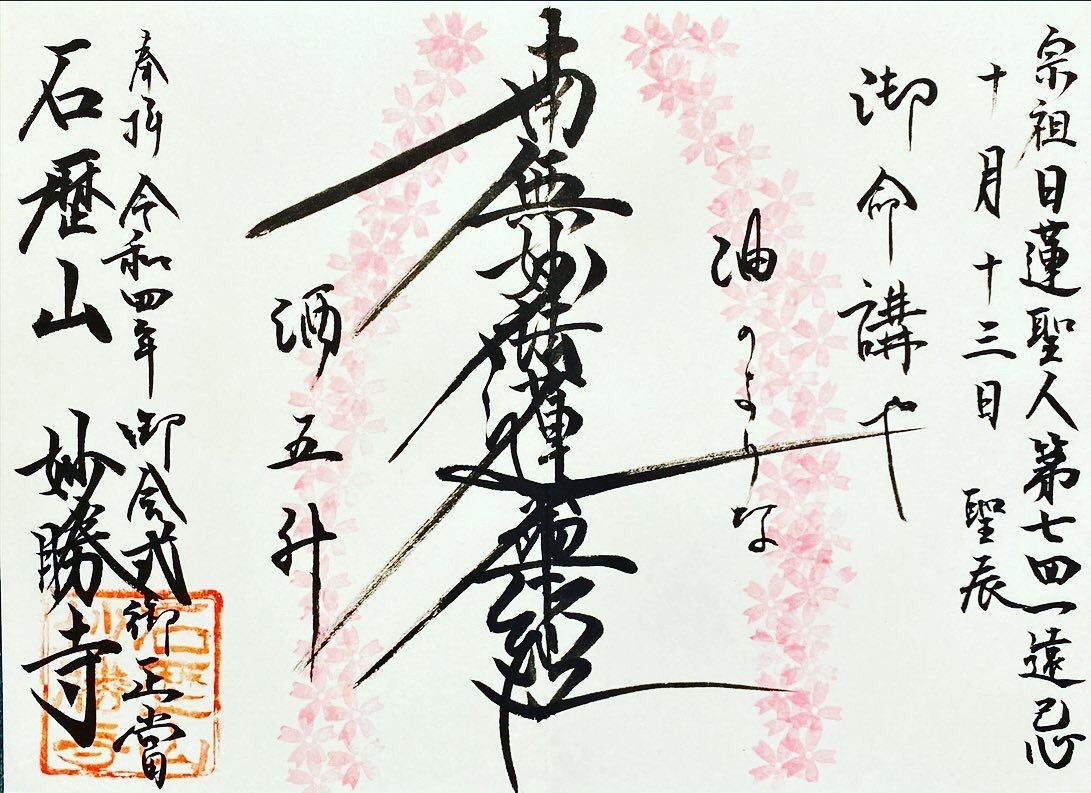 宗祖日蓮聖人第七四一遠忌
十月十三日 聖辰
御命講や
油のような
南無妙法蓮華經
酒五升
奉拝 令和四年 御会式御正當
石歴山 妙勝寺
石歴山
妙勝寺